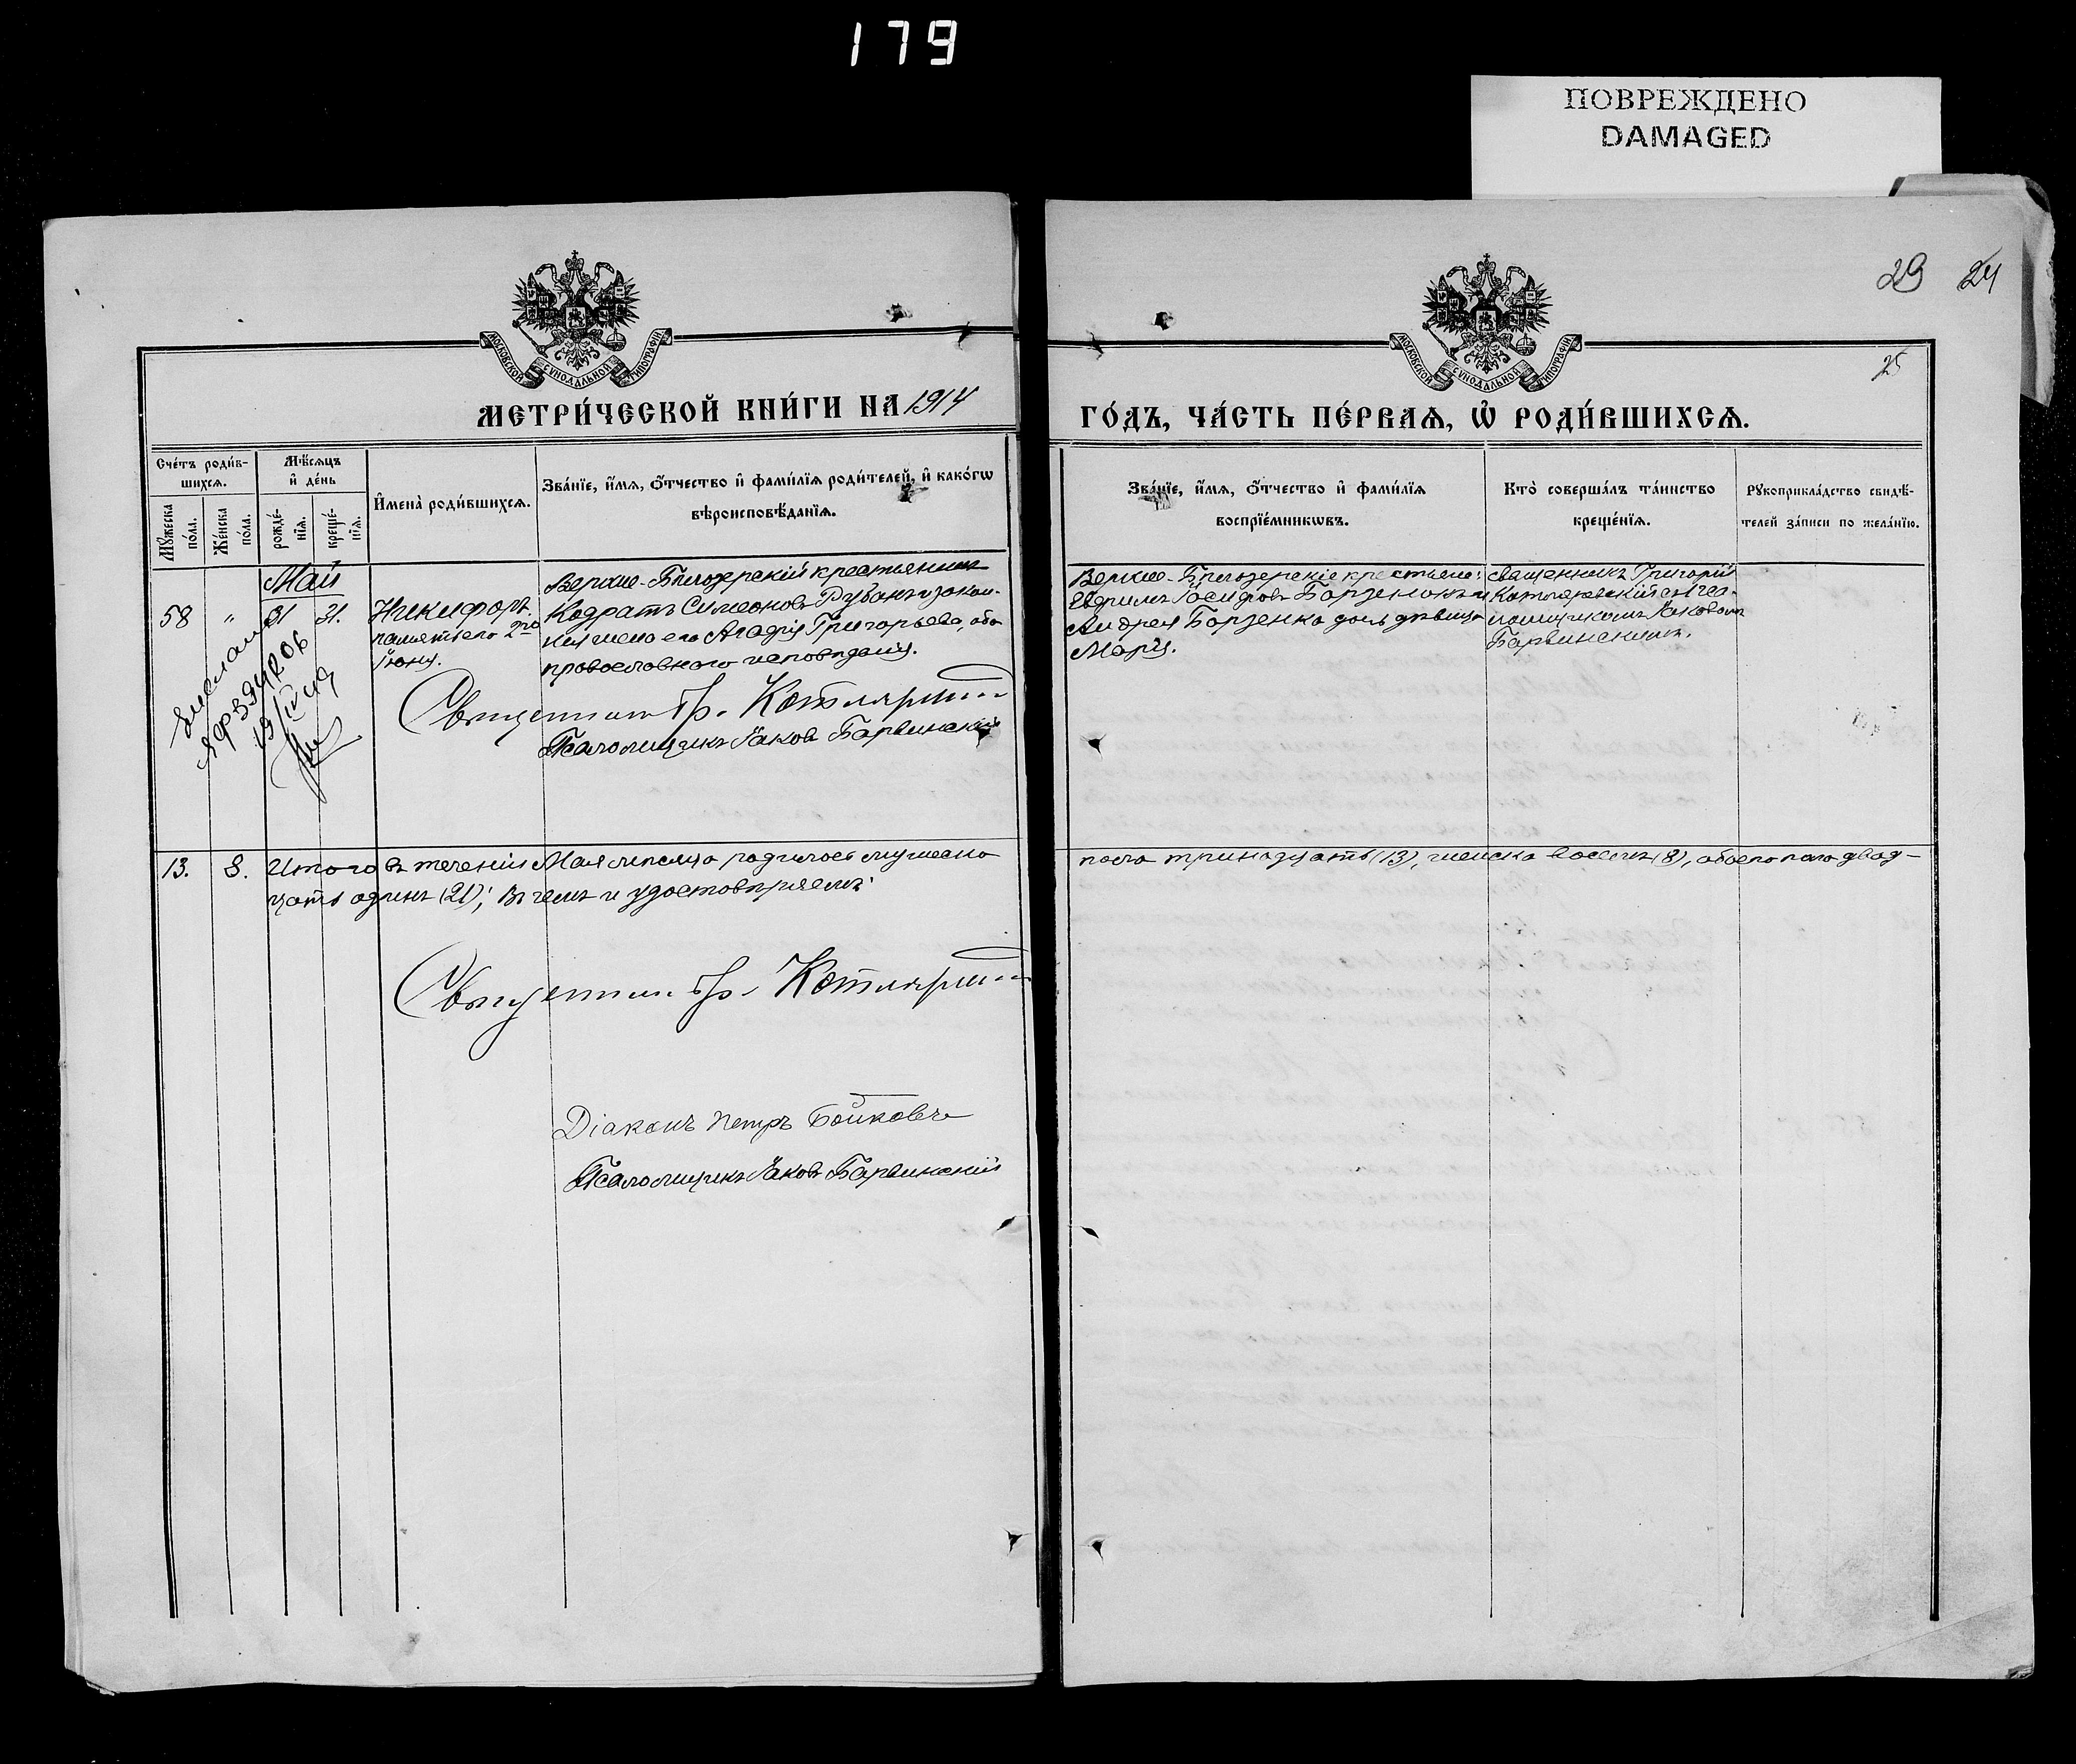 179
ПОВРЕЖДЕНО
DAMAGED
29 24
25
МОСКОВСКОЙ СѴНОДАЛЬНОЙ ТИПОГРАФІИ
МОСКОВСКОЙ СѴНОДАЛЬНОЙ ТИПОГРАФІИ
МЕТРИ́ЧЕСКОЙ КНИ́ГИ НА 1914
ГО́ДЪ, ЧА́СТЬ ПЕ́РВАѦ, Ѡ҆ РОДИ́ВШИХСѦ.
Сче́тъ роди́в-
шихсѧ.
Мꙋ́жеска по́ла.
Же́нска по́ла.
Мѣ́сѧцъ
и҆ де́нь
рожде́-
нїѧ.
креще́-
нїѧ.
И҆мена̀ роди́вшихсѧ.
Зва́нїе, и҆́мѧ, ѻ҆́тчество и҆ фами́лїѧ роди́телей, и҆ како́гѡ
вѣроисповѣ́данїѧ.
Зва́нїе, и҆́мѧ, ѻ҆́тчество и҆ фами́лїѧ
воспрїе́мникѡвъ.
Кто̀ соверша́лъ та́инство
креще́нїѧ.
Рꙋкоприкла́дство свидѣ́-
телей за́писи по жела́нїю.
Май
58 " 31 31. Никифоръ.
память его 2го
Іюня.
Верхне-Бѣлозерскій крестьянинъ
Кодратъ Симеоновъ Рубанъ и закон-
ная жена его Агафія Григорьева, оба
православнаго исповѣданія.
Священникъ Гр. Котляревскій
Псаломщикъ Іаковъ Барвинскій
Верхне-Бѣлозерскіе крестьяне:
Ефремъ Іосифовъ Борзенко и
Андрея Борзенко дочь дѣвица
Марія.
Священникъ Григорій
Котляревскій съ псал-
омщикомъ Іаковомъ
Барвинскимъ.
19/IV 49
13. 8. Итого въ теченіи Мая мѣсяца родилось мужеска
пола тринадцать (13), женска восемь (8), обоего пола двад-
цать одинъ (21); въ чемъ и удостовѣряемъ:
Священникъ Гр. Котляревскій
Діаконъ Петръ Бойковъ
Псаломщикъ Іаковъ Барвинскій